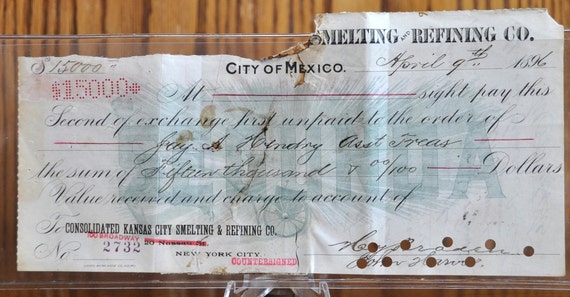 SMELTING AND REFINING CO.
$15000.00
CITY OF MEXICO. April 9th 1896
$15000
At sight pay this
Second of exchange first unpaid to the order of
Jay A Hendry Asst Treas
the sum of Fifteen thousand & 00/100 Dollars
Value received and charge to account of
To CONSOLIDATED KANSAS CITY SMELTING & REFINING CO.
100 BROADWAY
No 2732 20 NASSAU ST.
NEW YORK CITY
COUNTERSIGNED